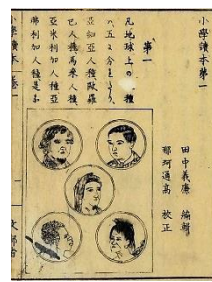 小學讀本第一
田中義廉 編輯
那珂通高 校正
第一
凡地球上の人種
亞細亞人種歐羅
巴人種馬來人種
亞米利加人種亞
弗利加人種是な
小學讀本 卷一
一
文部省